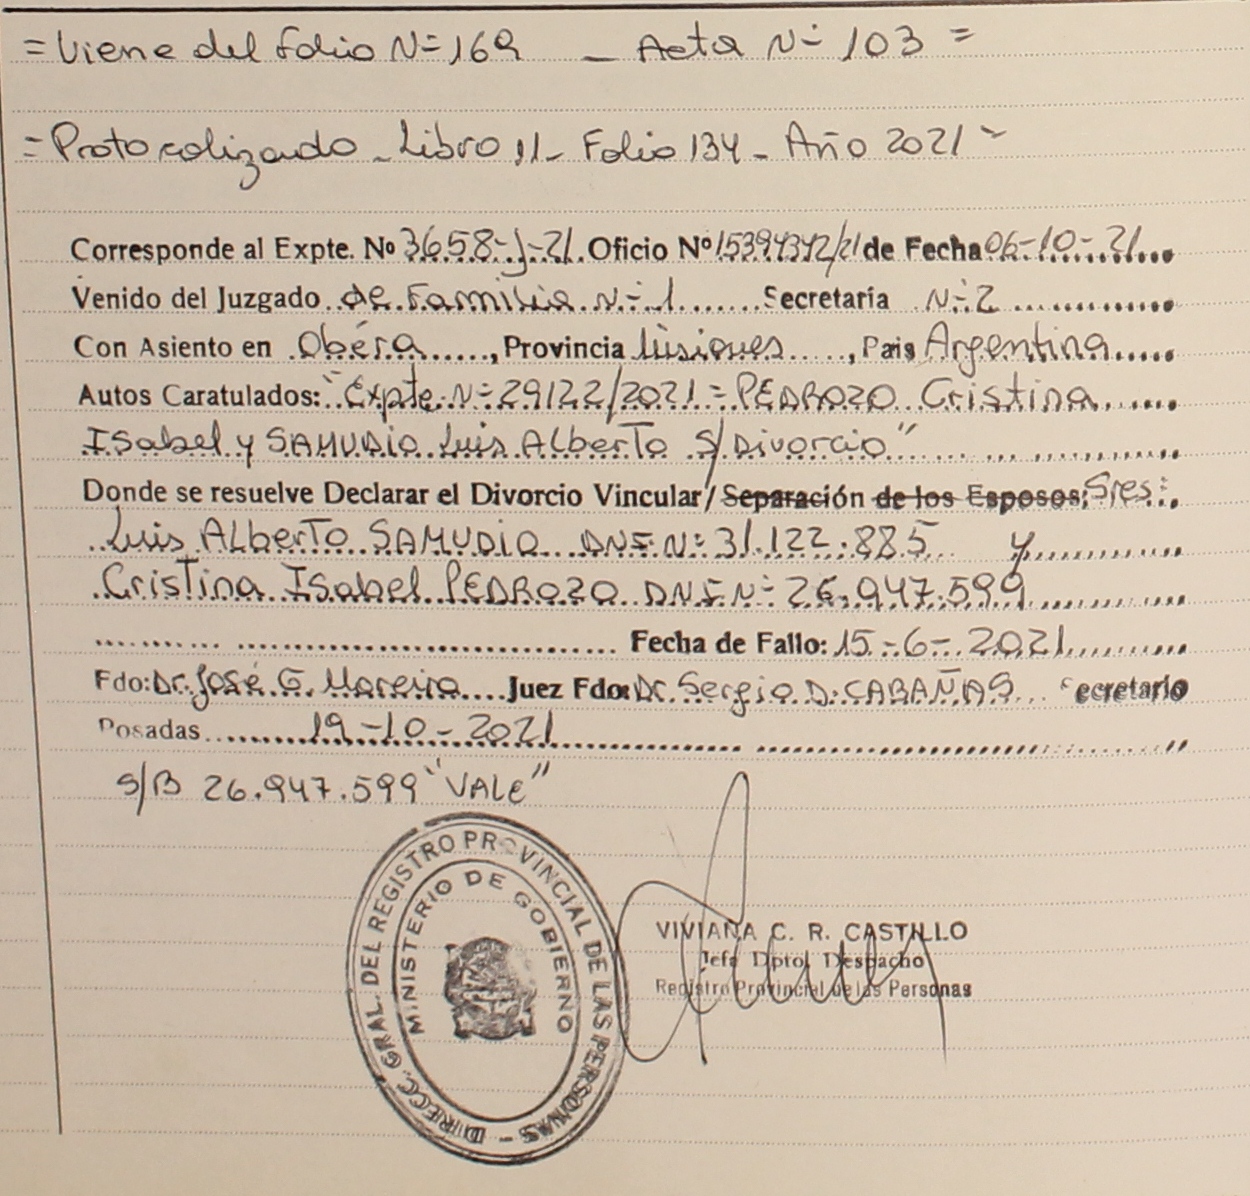 = Viene del folio Nº 169 _ Acta Nº 103 =
= Protocolizado - Libro 11 - Folio 134 - Año 2021 -
Corresponde al Expte. Nº 3658-J-21. Oficio Nº 15394342/21 de Fecha 06-10-21
Venido del Juzgado de Familia Nº 1 Secretaría Nº 2
Con Asiento en Oberá, Provincia Misiones, Pais Argentina
Autos Caratulados: "Expte. Nº 29122/2021 = PEDROZO Cristina
Isabel y SAMUDIO Luis Alberto S/Divorcio"
Donde se resuelve Declarar el Divorcio Vincular / Separación de los Esposos; Sres:
Luis Alberto SAMUDIO DNI Nº 31.122.885 y
Cristina Isabel PEDROZO DNI Nº 26.947.599
Fecha de Fallo: 15-6-2021
Fdo: Dr. José G. Moreira Juez Fdo: Dr. Sergio D. CABAÑAS Secretario
Posadas 19-10-2021
S/B 26.947.599 "VALE"
DIRECC. GRAL. DEL REGISTRO PROVINCIAL DE LAS PERSONAS -
MINISTERIO DE GOBIERNO
VIVIANA C. R. CASTILLO
Jefa Dpto. Despacho
Registro Provincial de las Personas